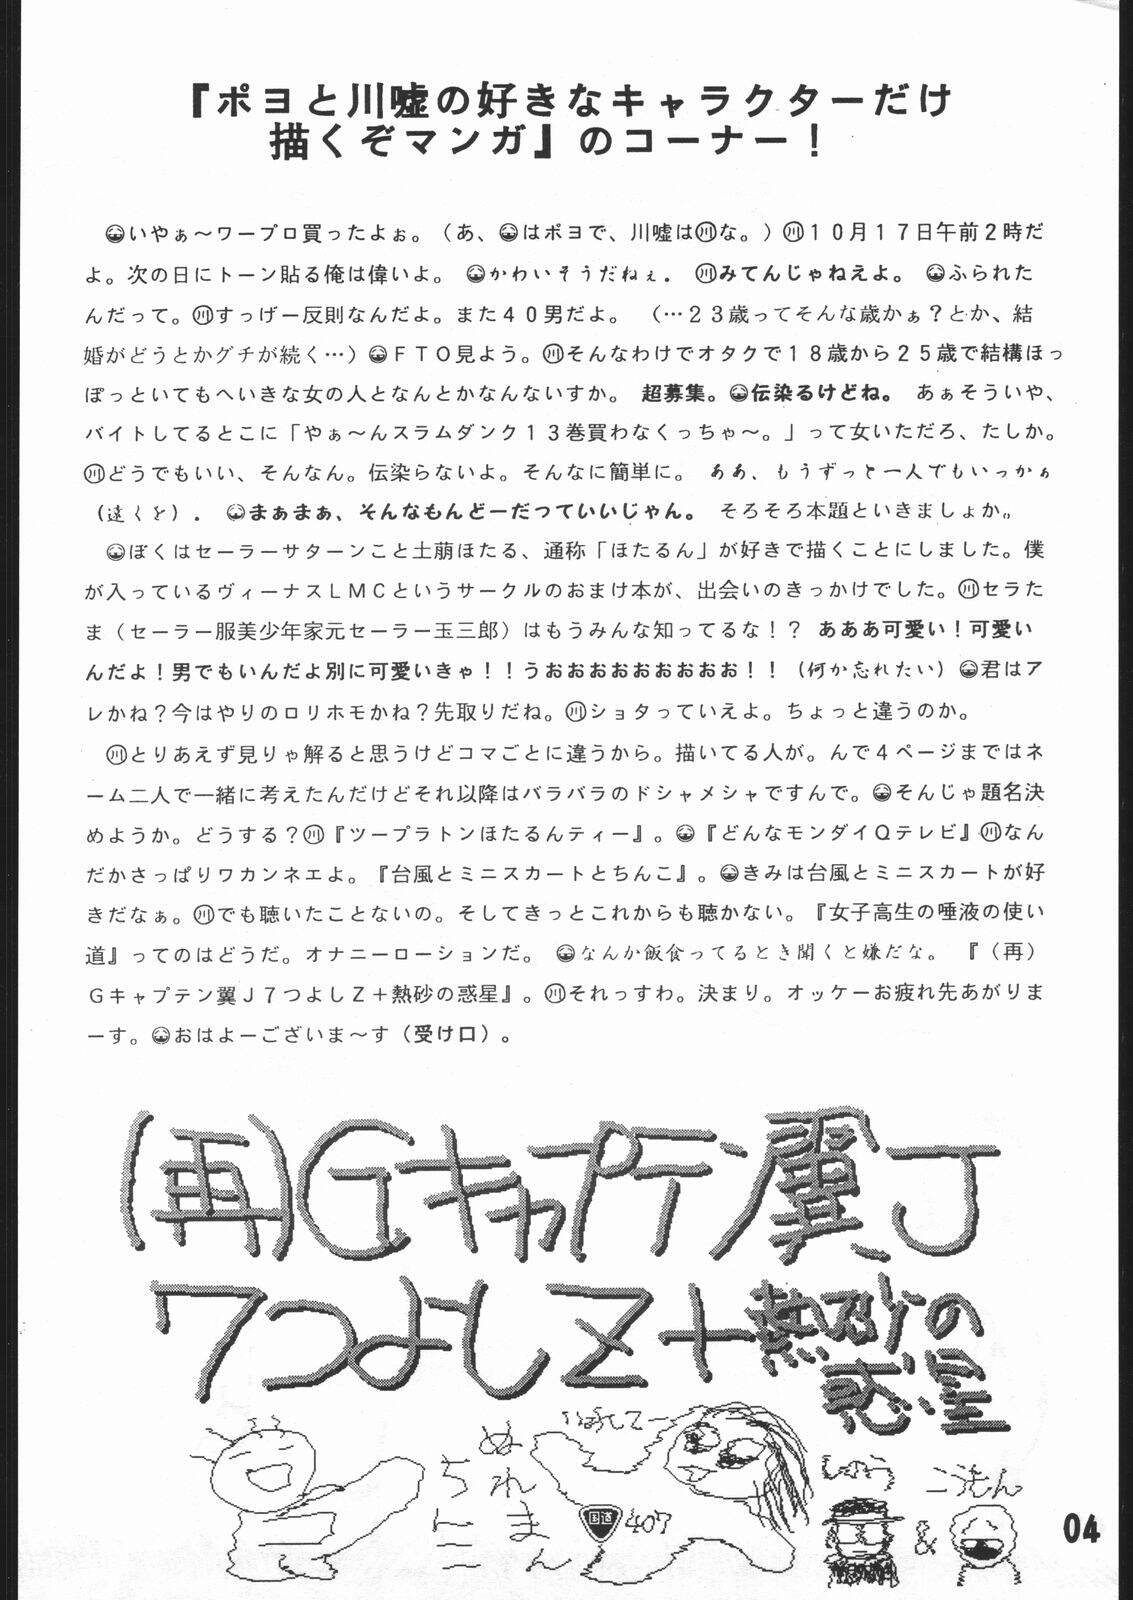 『ポヨと川嘘の好きなキャラクターだけ
描くぞマンガ』のコーナー！
いやぁ～ワープロ買ったよぉ。（あ、はポヨで、川嘘は㊋な。）１０月１７日午前２時だ
よ。次の日にトーン貼る俺は偉いよ。かわいそうだねぇ．川みてんじゃねえよ。ふられた
んだって。川すっげー反則なんだよ。また４０男だよ。（…２３歳ってそんな歳かぁ？とか、結
婚がどうとかグチが続く…）ＦＴＯ見よう。川そんなわけでオタクで１８歳から２５歳で結構ほっ
ぽっといてもへいきな女の人となんとかなんないすか。超募集。伝染るけどね。あぁそういや、
バイトしてるとこに「やぁ～んスラムダンク１３巻買わなくっちゃ～。」って女いただろ、たしか。
川どうでもいい、そんなん。伝染らないよ。そんなに簡単に。ああ、もうずっと一人でもいっかぁ
（遠くを）．まぁまぁ、そんなもんどーだっていいじゃん。そろそろ本題といきましょか。
ぼくはセーラーサターンこと土萠ほたる、通称「ほたるん」が好きで描くことにしました。僕
が入っているヴィーナスＬＭＣというサークルのおまけ本が、出会いのきっかけでした。川セラた
ま（セーラー服美少年家元セーラー玉三郎）はもうみんな知ってるな！？あああ可愛い！可愛い
んだよ！男でもいんだよ別に可愛いきゃ！！うおおおおおおおおお！！（何か忘れたい）君はア
レかね？今はやりのロリホモかね？先取りだね。川ショタっていえよ。ちょっと違うのか。
川とりあえず見りゃ解ると思うけどコマごとに違うから。描いてる人が。んで４ページまではネ
ーム二人で一緒に考えたんだけどそれ以降はバラバラのドシャメシャですんで。そんじゃ題名決
めようか。どうする？川『ツープラトンほたるんティー』。『どんなモンダイＱテレビ』川なん
だかさっぱりワカンネエよ。『台風とミニスカートとちんこ』。きみは台風とミニスカートが好
きだなぁ。川でも聴いたことないの。そしてきっとこれからも聴かない。『女子高生の唾液の使い
道』ってのはどうだ。オナニーローションだ。なんか飯食ってるとき聞くと嫌だな。『（再）
Ｇキャプテン翼Ｊ７つよしＺ＋熱砂の惑星』。川それっすわ。決まり。オッケーお疲れ先あがりま
ーす。おはよーございま～す（受け口）。
（再）Ｇキャプテン翼Ｊ
７つよしＺ＋熱砂の
惑星
ちんこ
ぬれまん
国道
407
しゅう
&
こうもん
04